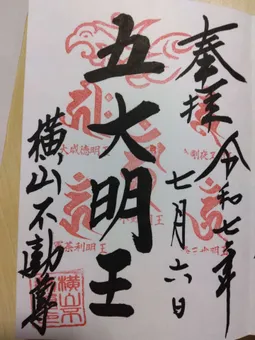 奉拝
令和七年
七月六日
五大明王
大威徳明王
軍荼利明王
横山不動尊